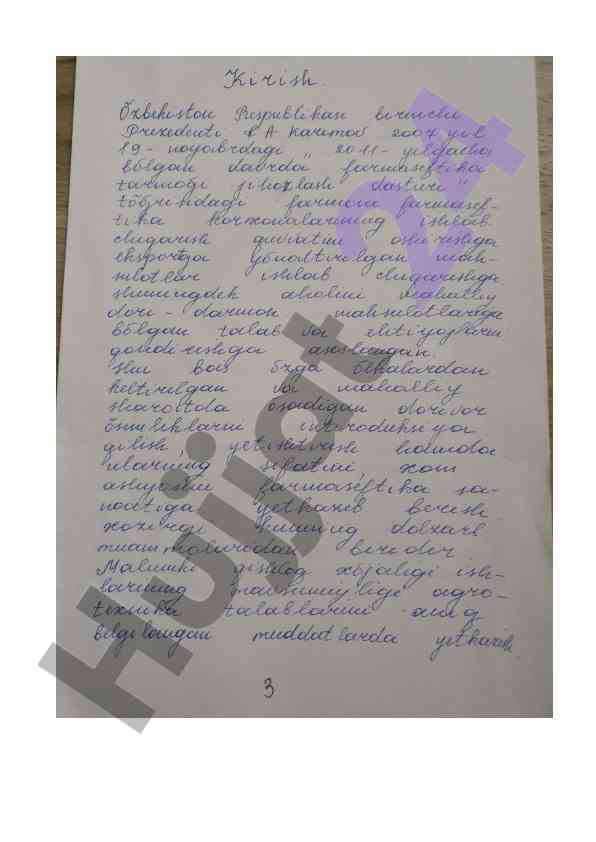 Kirish.
Õzbekiston Respublikasi birinchi
Prezidenti I. A Karimov 2007 yil
19 - noyabrdagi " 2011 - yilgacha
bõlgan davrda farmasevtika
tarmoği jihozlash dasturi "
tõğrisidagi farmoni farmasef-
tika korxonalarining ishlab
chiqarish quvvatini oshirishga
eksportga yõnaltirilgan mah-
sulotlar ishlab chiqarishga
shuningdek aholini mahalliy
dori - darmon mahsulotlariga
bõlgan talab va ehtiyojlarini
qondirishga asoslangan.
shu bois õzga õlkalardan
keltirilgan va mahalliy
sharoitda õsadigan dorivor
õsimliklarni introduksiya
qilish, yetishtirish hamda
ularning sifatini, xom
ashyosini farmaseftika sa-
noatiga yetkazib berish
xozirgi kunning dolzarb
muammolaridan biridir.
Malumki qishloq xõjaligi ish-
larining mavsumiyligi agro-
texnika talablarini aniq
belgilangan muddatlarda
3
Hujjat 24